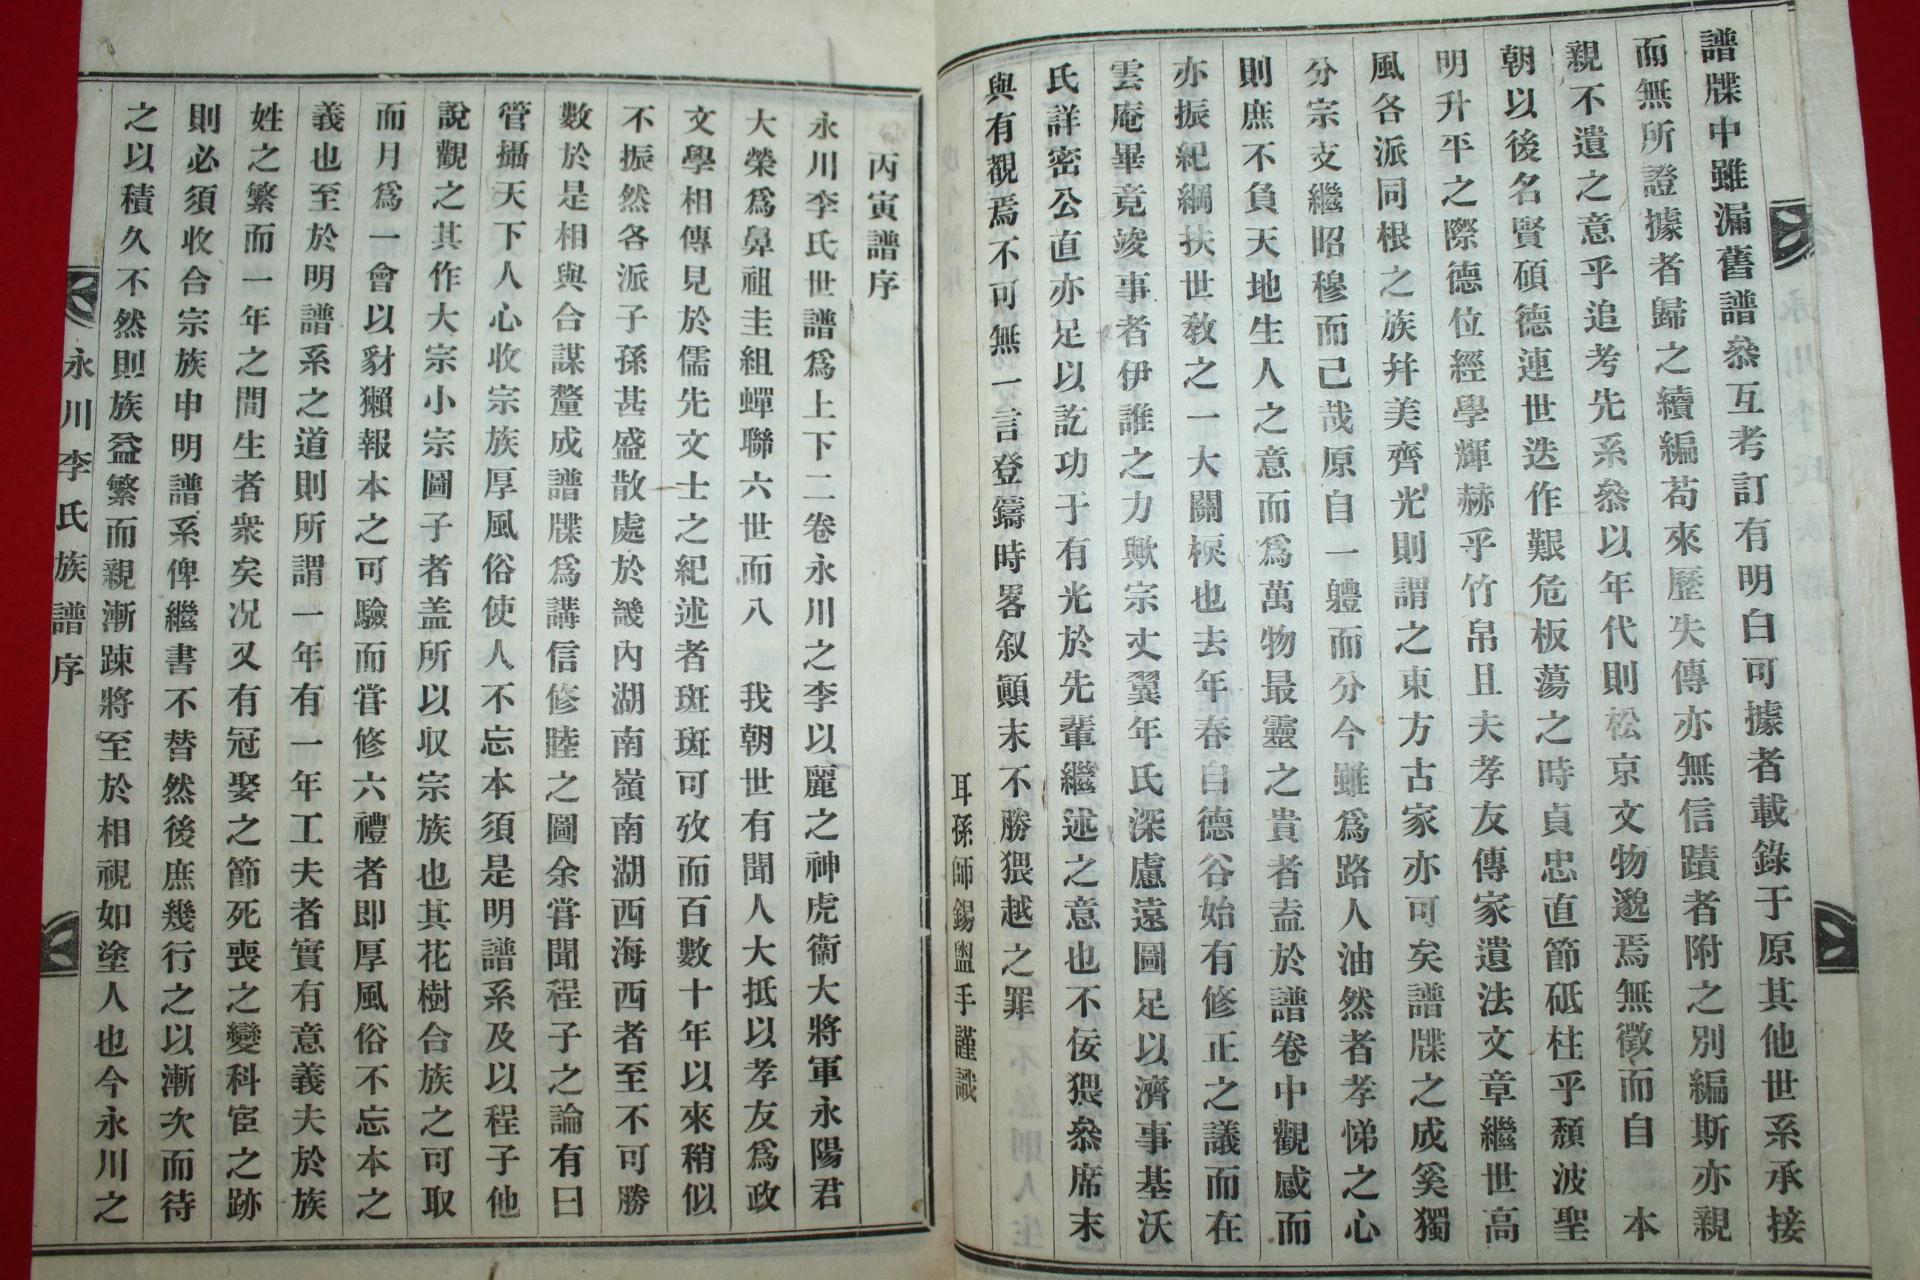 譜牒中雖漏舊譜叅互考訂有明白可據者載錄于原其他世系承接
而無所證據者歸之續編苟來歷失傳亦無信蹟者附之別編斯亦親
親不遺之意乎追考先系叅以年代則松京文物邈焉無徵而自 本
朝以後名賢碩德連世迭作艱危板蕩之時貞忠直節砥柱乎頹波聖
明升平之際德位經學輝赫乎竹帛且夫孝友傳家遺法文章繼世高
風各派同根之族幷美齊光則謂之東方古家亦可矣譜牒之成奚獨
分宗支繼昭穆而己哉原自一軆而分今雖爲路人油然者孝悌之心
則庶不負天地生人之意而爲萬物最靈之貴者盍於譜卷中觀感而
亦振紀綱扶世敎之一大關棙也去年春自德谷始有修正之議而在
雲庵畢竟竣事者伊誰之力歟宗丈翼年氏深慮遠圖足以濟事基沃
氏詳密公直亦足以訖功于有光於先輩繼述之意也不佞猥叅席末
與有觀焉不可無一言登鑄時畧叙顚末不勝猥越之罪
耳孫師錫盥手謹識
丙寅譜序
永川李氏世譜爲上下二卷永川之李以麗之神虎衞大將軍永陽君
大榮爲鼻祖圭組蟬聯六世而八 我朝世有聞人大抵以孝友爲政
文學相傳見於儒先文士之紀述者斑斑可攷而百數十年以來稍似
不振然各派子孫甚盛散處於畿內湖南嶺南湖西海西者至不可勝
數於是相與合謀釐成譜牒爲講信修睦之圖余甞聞程子之論有曰
管攝天下人心收宗族厚風俗使人不忘本須是明譜系及以程子他
說觀之其作大宗小宗圖子者盖所以収宗族也其花樹合族之可取
而月爲一會以豺獺報本之可驗而甞修六禮者即厚風俗不忘本之
義也至於明譜系之道則所謂一年有一年工夫者實有意義夫於族
姓之繁而一年之間生者衆矣况又有冠娶之節死喪之變科宦之跡
則必須收合宗族申明譜系俾繼書不替然後庶幾行之以漸次而待
之以積久不然則族益繁而親漸踈將至於相視如塗人也今永川之
永川李氏族譜序